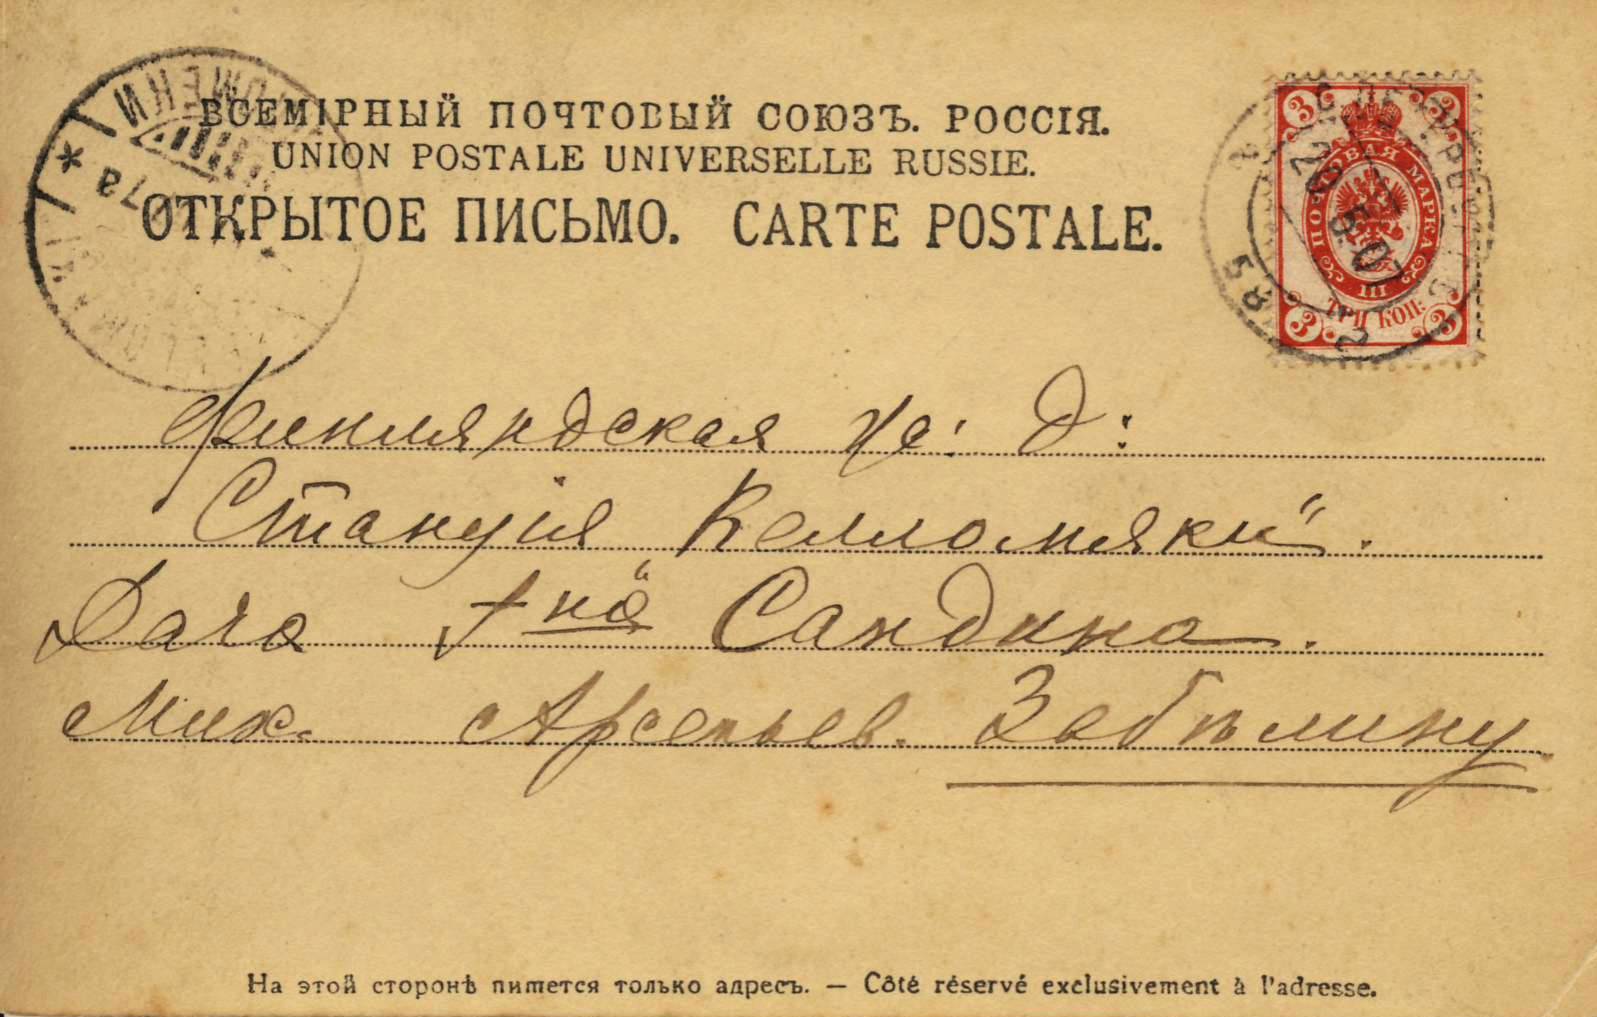 ВСЕМІРНЫЙ ПОЧТОВЫЙ СОЮЗЪ. РОССІЯ.
UNION POSTALE UNIVERSELLE RUSSIE.
ОТКРЫТОЕ ПИСЬМО. CARTE POSTALE.
3 3
ПОЧТОВАЯ МАРКА
III
ТРИ КОП.
3 3
5.07
Финляндская же: д:
Станція Келломяки".
Дача Сандина.
Мих. Арсеньев. Забѣлину
На этой сторонѣ пишется только адресъ. — Côté réservé exclusivement à l'adresse.